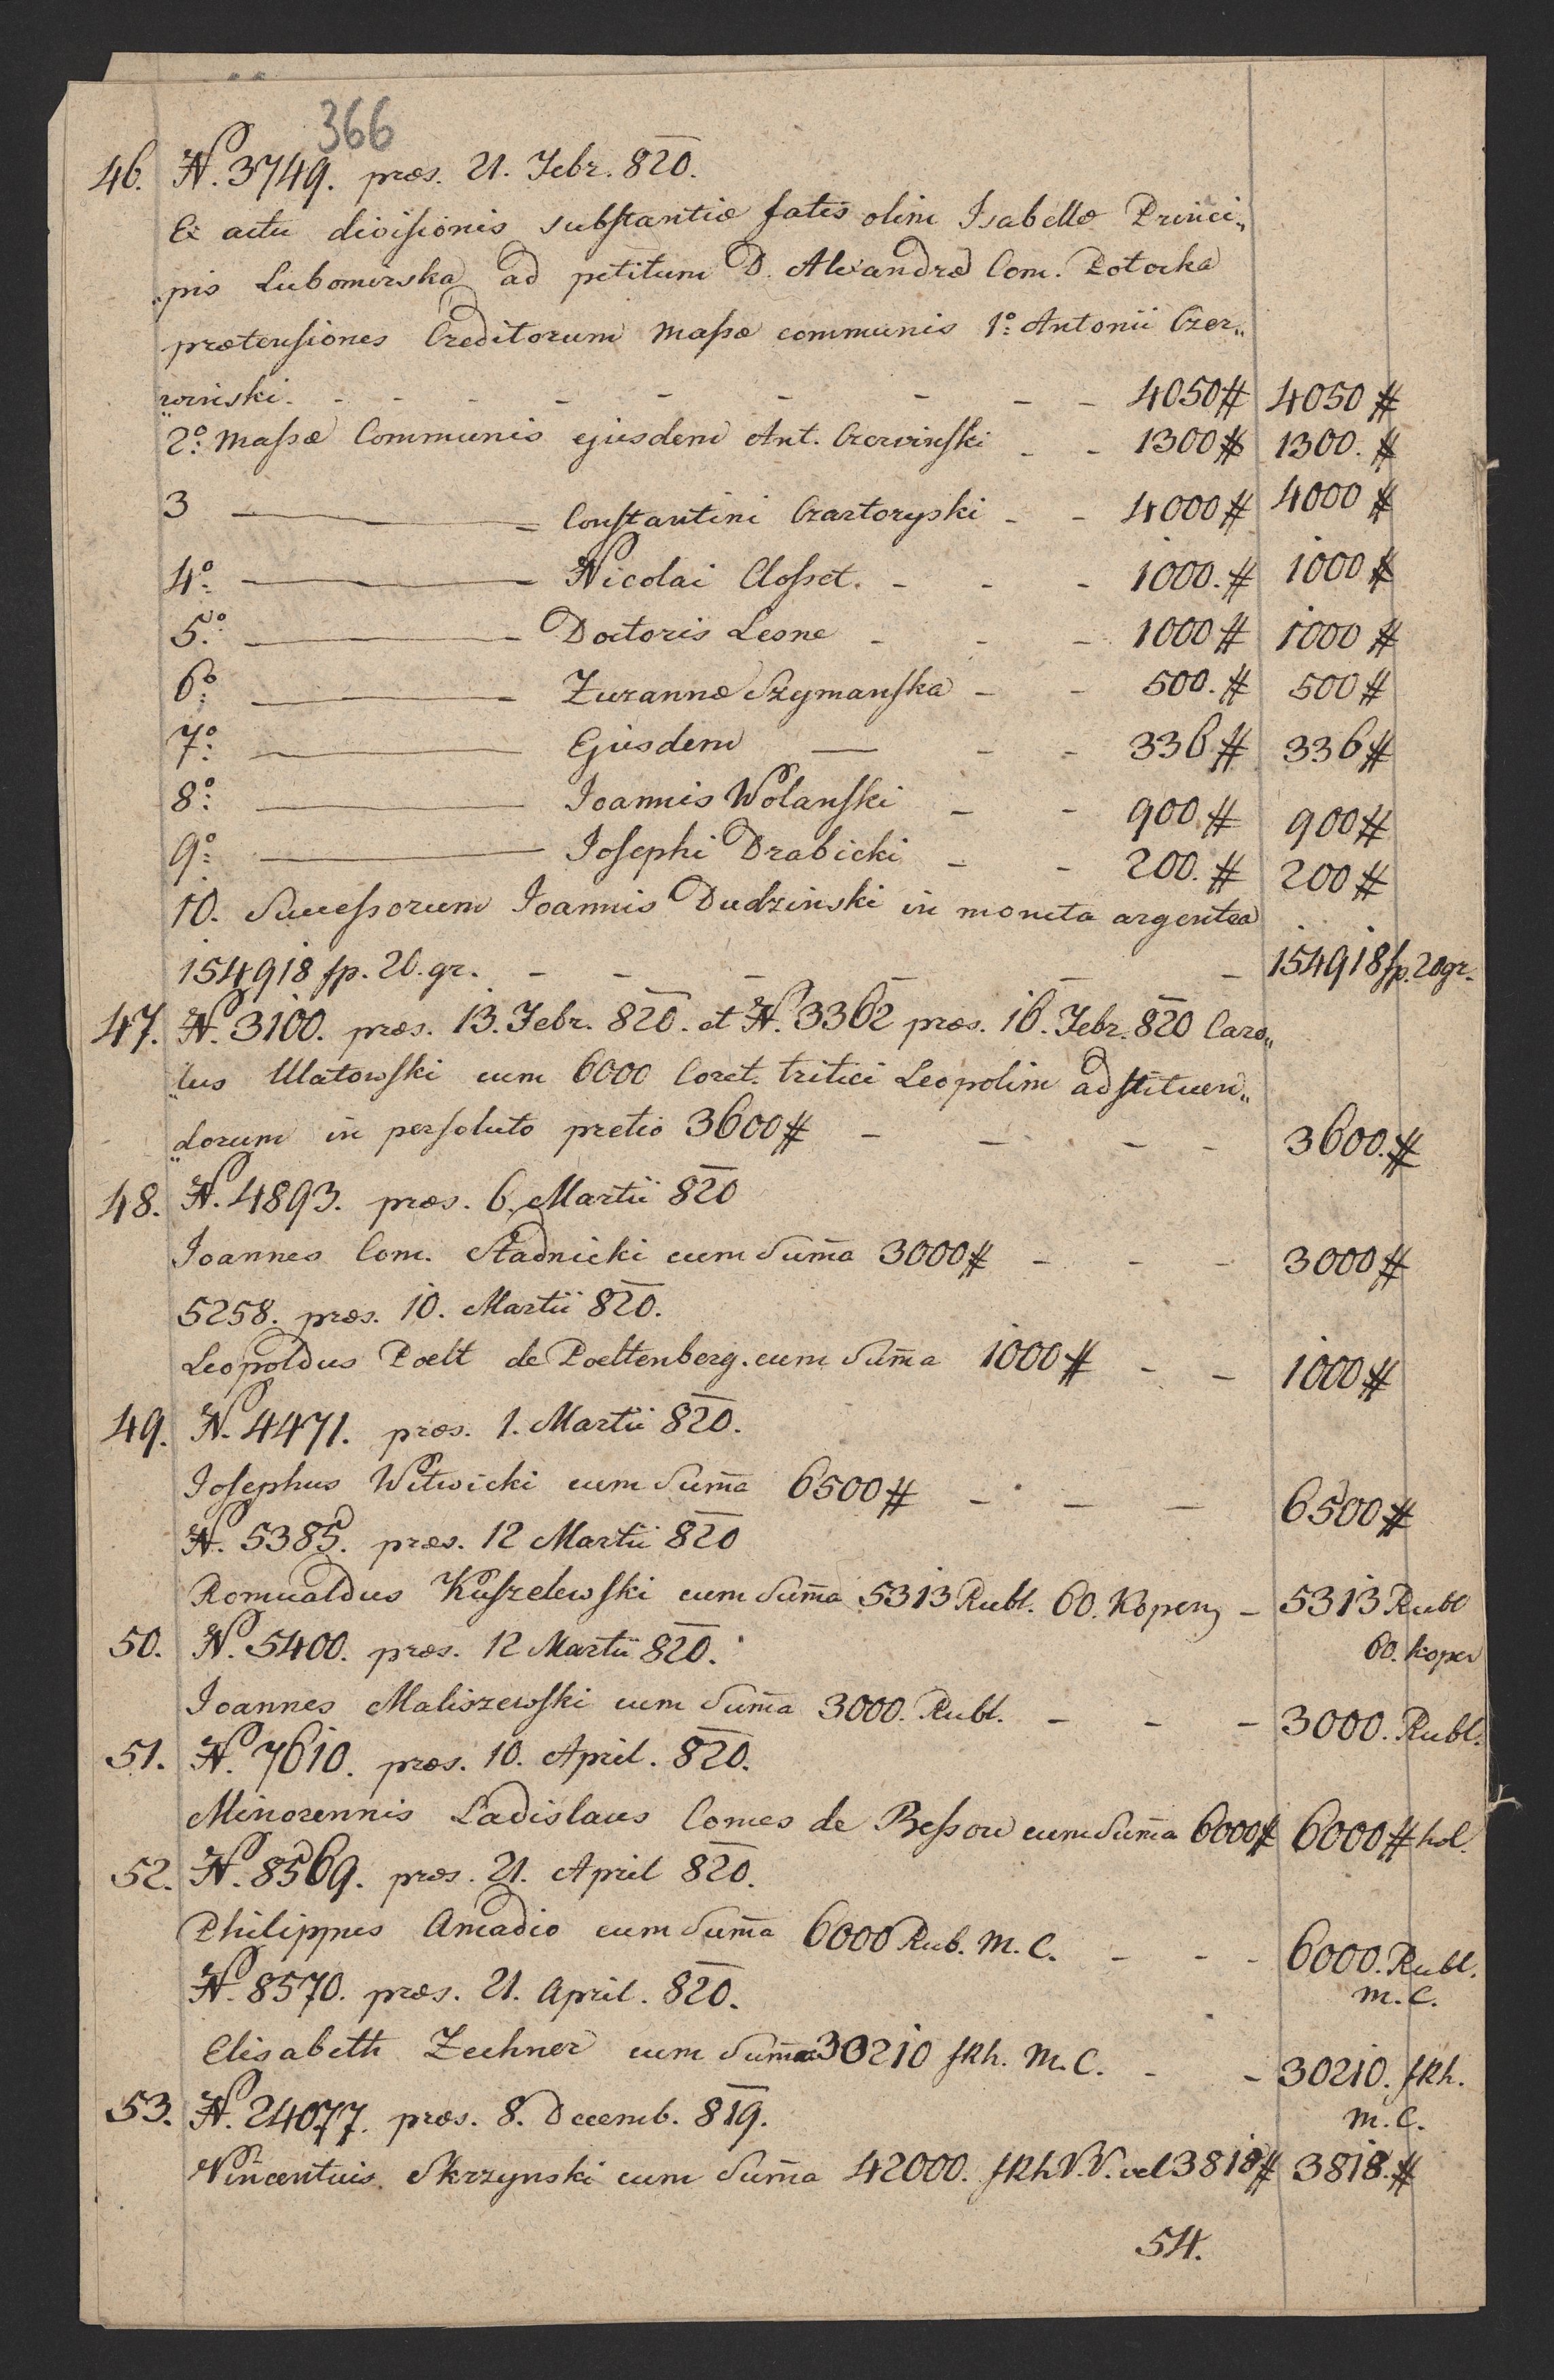 366
46. N. 3749. præs. 21. Febr. 820.
Ex actu divisionis substantiæ fatis olim Isabellæ Princi„
„pis Lubomirska ad petitum D. Alexandræ Com. Potocka
prætensiones Creditorum Massæ communis 1º: Antonii Czer„
„winski - - - - - - - - - 4050 # 4050 #
2º: Massæ Communis ejusdem Ant. Czerwinski - - 1300 # 1300. #
3 ——— Constantini Czartoryski - - 4000 # 4000 #
4º: ——— Nicolai Closset. - - - 1000. # 1000 #
5.º ——— Doctoris Leone - - - 1000 # 1000 #
6º: ——— Zuzannæ Szymanska - - 500. # 500 #
7º: ——— Ejusdem — - - 336 # 336 #
8º: ——— Joannis Wolanski - - 900 # 900 #
9º: ——— Josephi Drabicki - - 200. # 200 #
10. Successorum Joannis Dudzinski in moneta argentea
154918 fp. 20. gr. - - - - - 154918 fp. 20 gr.
47. N. 3100. præs. 13. Febr. 820. et N. 3362 præs. 16. Febr. 820 Caro„
„lus Ulatowski cum 6000 Coret. tritici Leopolim adstituen„
„dorum in persoluto pretio 3600 # - - - - 3600. #
48. N. 4893. præs. 6. Martii 820
Joannes Com. Stadnicki cum Summa 3000 # - - - 3000 #
5258. præs. 10. Martii 820.
Leopoldus Poelt de Poeltenberg. cum Summa 1000 # - - 1000 #
49. N. 4471. præs. 1. Martii 820.
Josephus Witwicki cum Summa 6500 # - - - 6500 #
N. 5385. præs. 12 Martii 820
Romualdus Kuszelewski cum Summa 5313 Rubl. 60. Kopeny - 5313 Rubl
60. kopen
50. N. 5400. præs. 12 Martii 820.
Joannes Maliszewski cum Summa 3000. Rubl. - - - 3000. Rubl.
51. N. 7610. præs. 10. April. 820.
Minorennis Ladislaus Comes de Bessou cum Summa 6000 # 6000 # hol.
52. N. 8569. præs. 21. April 820.
Philippus Amadio cum Summa 6000 Rub. M. C. - - - 6000. Rubl.
m. C.
N. 8570. præs. 21. April. 820.
Elisabeth Zechner cum Summa 30210 fRh. M. C. - - 30210. fRh.
m. C.
53. N. 24077. præs. 8. Decemb. 819.
Vincentius Skrzynski cum Summa 42000. fRh V. V. vel 3818 # 3818. #
54.